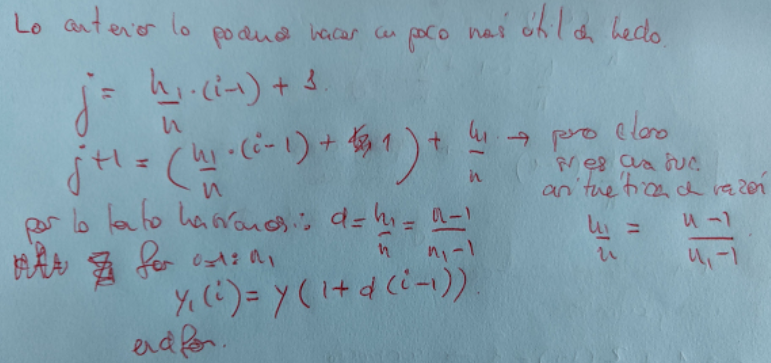 Lo anterior lo podemos hacer un poco más útil de hecho.
j = h₁/h · (i-1) + 1.
j+1 = (h₁/h · (i-1) + 1) + h₁/h → pero claro
si es una suc.
aritmética de razón
h₁/h = n-1/n₁-1
por lo tanto hacíamos: d = h₁/h = n-1/n₁-1
for i=1:n₁
y₁(i) = y(1+d(i-1)).
endfor.